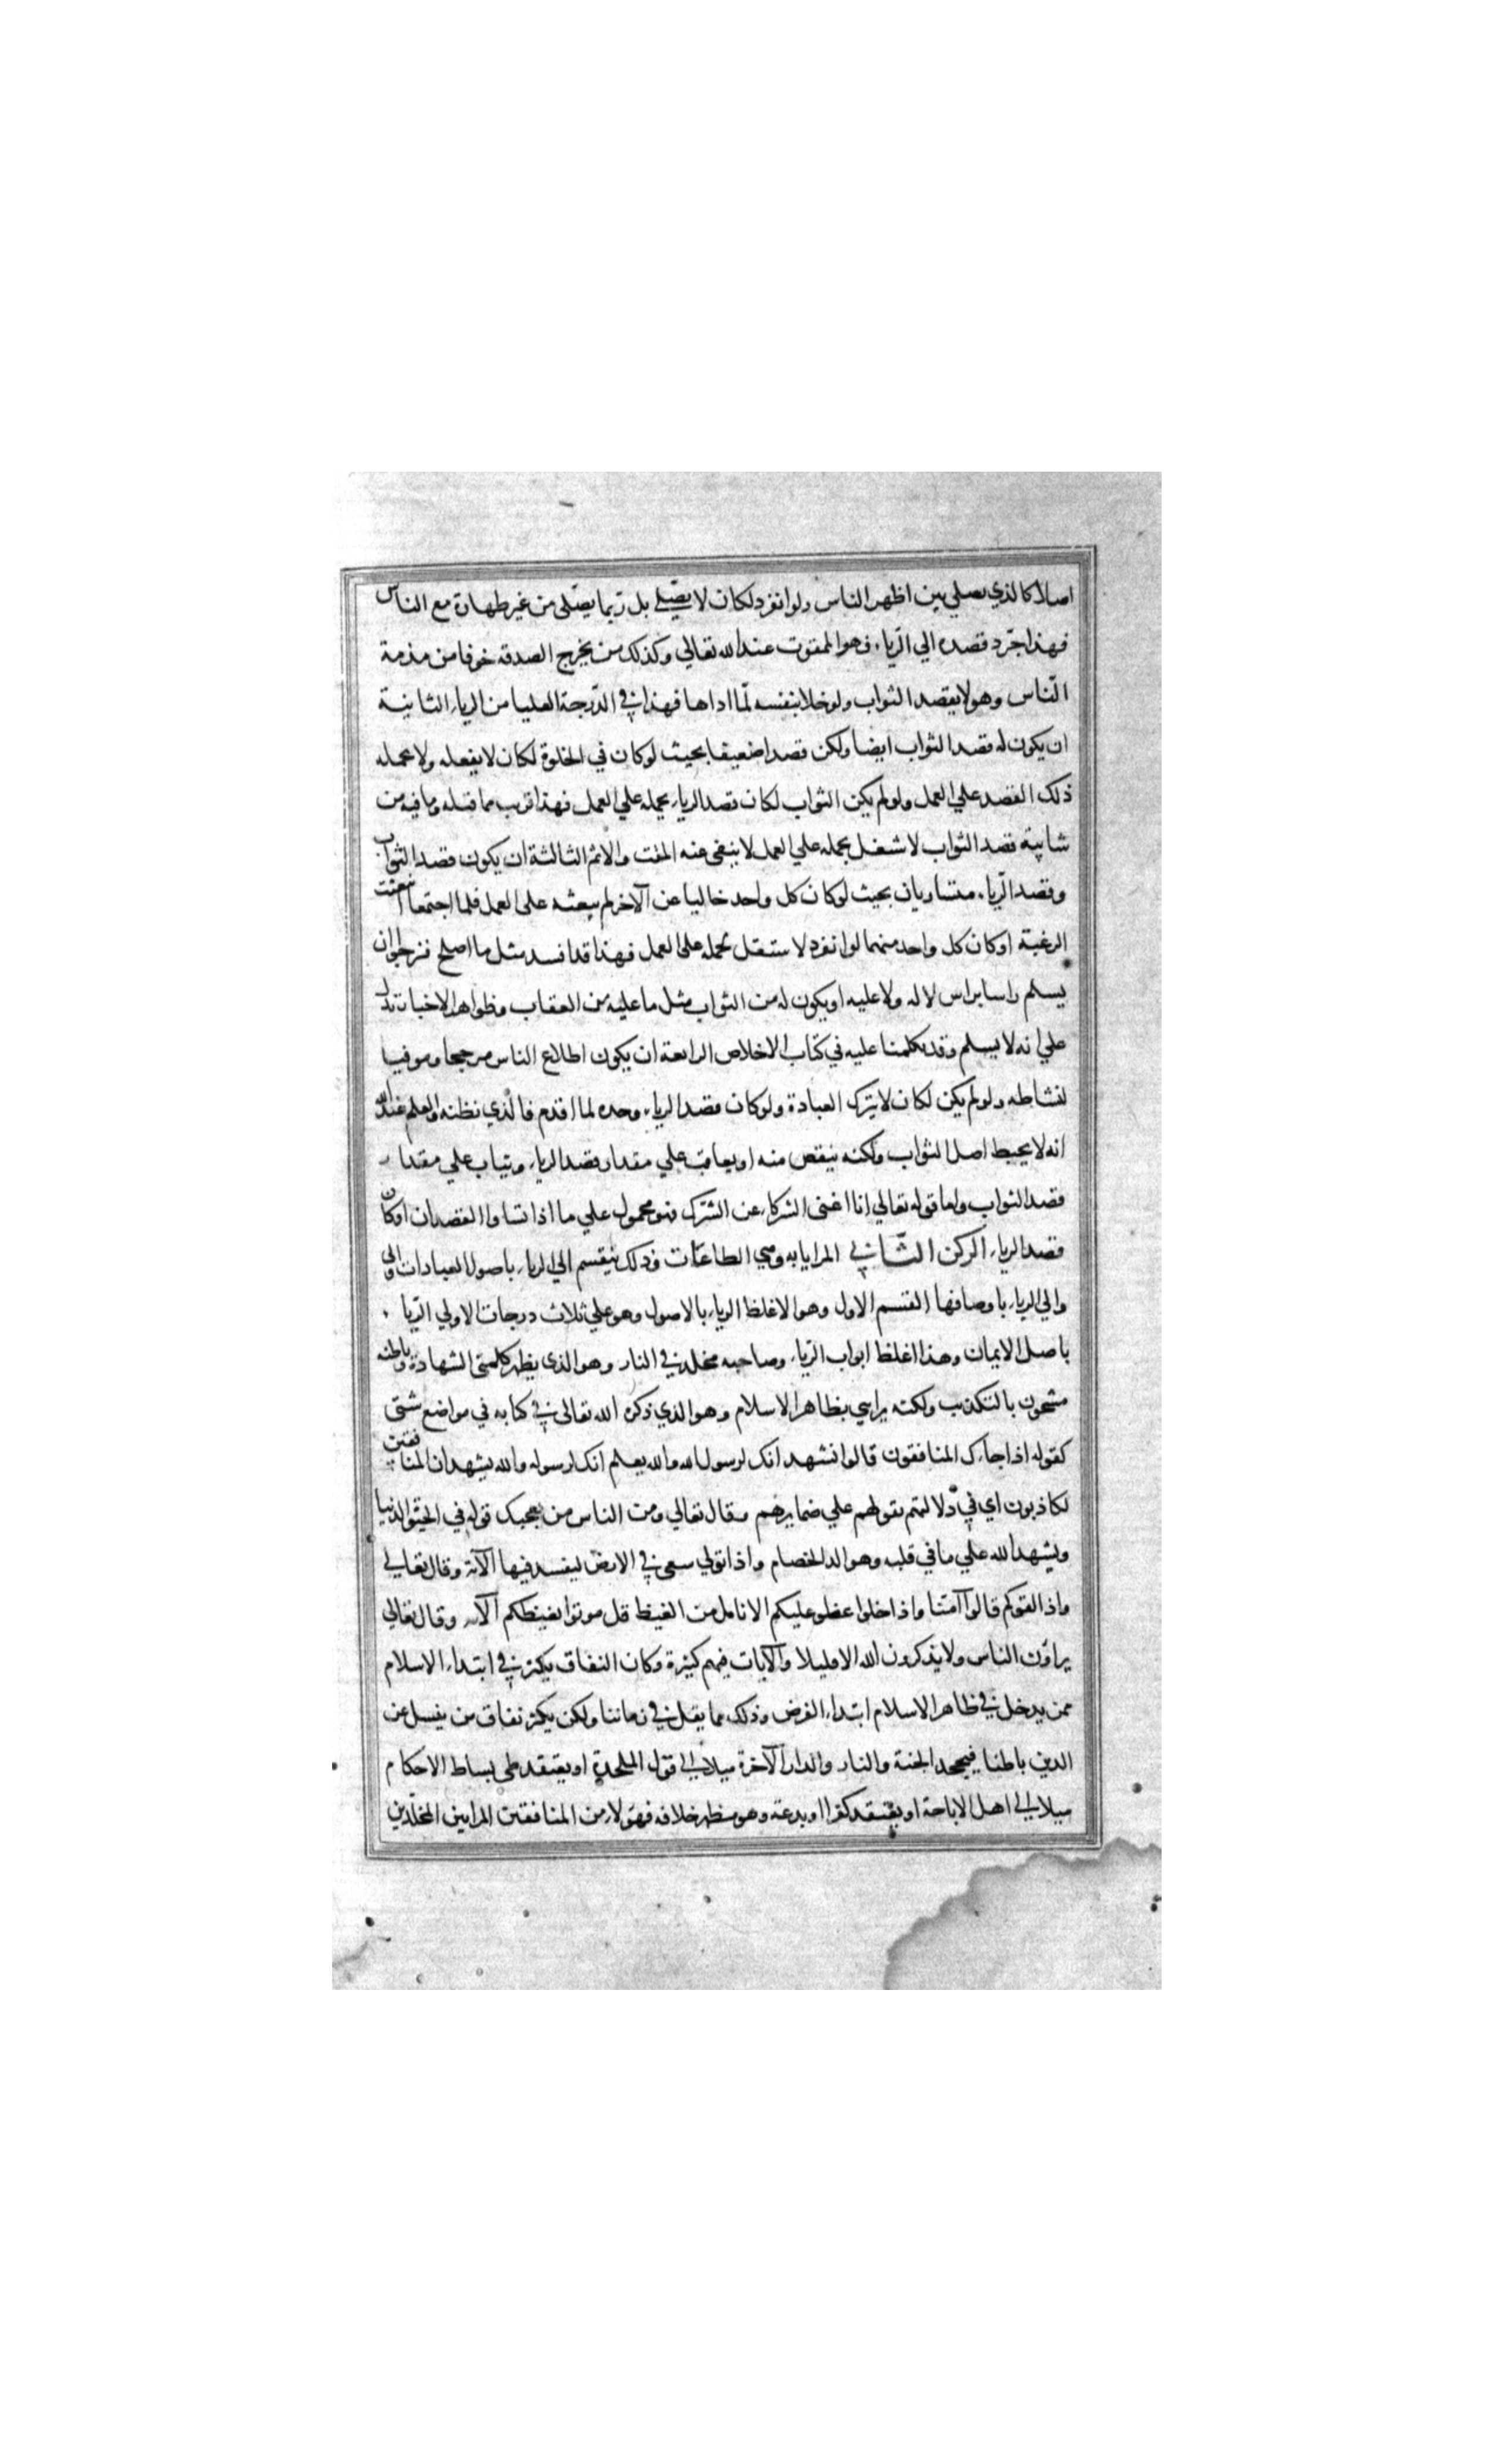 اصلا كالذي يصلي بين اظهر الناس ولو انفرد لكان لا يصّلي بل ربّما يصّلى من غير طهارة مع الناس
فهذا جرّد قصده الي الرّياء فهو الممقوت عند الله تعالي وكذلك من يخرج الصدقه خوفا من مذمة
النّاس وهو لا يقصد الثواب ولو خلا بنفسه لمّا اداها فهذا في الدّرجة العليا من الرياء الثانية
ان يكون له قصد الثواب ايضا ولكن قصدا ضعيفا بحيث لو كان في الخلوة لكان لا يفعله ولا يحمله
ذلك القصد علي العمل ولو لم يكن الثواب لكان قصد الرياء يحمله علي العمل فهذا قريب مما قبله وما فيه من
شايبة قصد الثواب لا شغل بحمله علي العمل لا ينفى عنه المقت والاثم الثالثة ان يكون قصد الثواب
وقصد الرّياء متساويان بحيث لو كان كل واحد خاليا عن الآخر لم يبعثه على العمل فلما اجتمعا انبعثت
الرغبة او كان كل واحد منهما لو انفرد لا ستقل بحمله على العمل فهذا قد افسد مثل ما اصلح فنرجوا ان
يسلم راسا براس لا له ولا عليه او يكون له من الثواب مثل ما عليه من العقاب وظواهر الاخبار تدل
علي انه لا يسلم وقد تكلمنا عليه في كتاب الاخلاص الرابعة ان يكون اطلاع الناس مرجحا ومو فيا
لنشاطه ولو لم يكن لكان لا يترك العبادة ولو كان قصد الرياء وحده لما اقدم فالذي نظنه والعلم عند الله
انه لا يحبط اصل الثواب ولكنه ينقص منه او يعاقب علي مقدار قصد الرياء ويثاب علي مقدار
قصد الثواب واما قوله تعالي انا اغنى الشركاء عن الشّرك فهو محمول علي ما اذا تساوا القصدان او كان
قصد الرياء الركن الثّاني المرايا به وهي الطاعات وذلك ينقسم الي الرياء باصول العبادات والى
والي الرياء باوصافها القسم الاول وهو الاغلظ الرياء بالاصول وهو علي ثلاث درجات الاولي الرّيا
باصل الايمان وهذا اغلظ ابواب الرّياء وصاحبه مخلد في النار وهو الذي يظهر كلمتي الشهادة وباطنه
مشحون بالتكذيب ولكنه يرايي بظاهر الاسلام وهو الذي ذكره الله تعالى في كتابه في مواضع شتّى
كقوله اذا جاءك المنافقون قالوا نشهد انك لرسول الله والله يعلم انك لرسوله والله يشهد ان المنافقين
لكاذبون اي في دلالتهم بقولهم علي ضمايرهم وقال تعالي ومن الناس من يعجبك قوله في الحيوة الدنيا
ويشهد الله علي ما في قلبه وهو الد الخصام واذا تولي سعى في الارض ليفسد فيها الآية وقال تعالي
واذا لقوكم قالوا آمنّا واذا خلوا عضو عليكم الانامل من الغيظ قل موتوا بغيظكم الآيه وقال تعالي
يراؤن الناس ولا يذكرون الله الا قليلا والآيات فيهم كثيرة وكان النفاق يكثر في ابتداء الاسلام
ممن يدخل في ظاهر الاسلام ابتداء الغرض وذلك مما يقل في زماننا ولكن يكثر نفاق من ينسل عن
الدين باطنا فيجحد الجنة والنار والدار الآخرة ميلا الي قول الملحدة او يعتقد طى بساط الاحكام
ميلا الي اهل الاباحة او يعتقد كفرا او بدعة وهو يظهر خلافه فهؤلاء من المنافقين المرايين المخلّدين